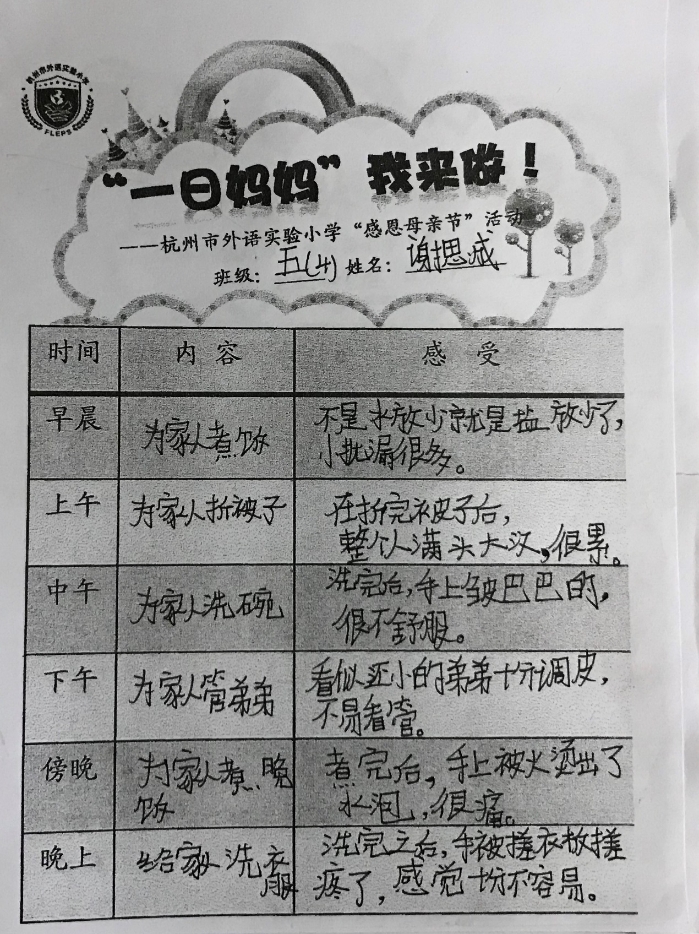 杭州市外语实验小学
FLEPS
“一日妈妈”我来做！
——杭州市外语实验小学“感恩母亲节”活动
班级：五(4) 姓名：谢思成
时间 内容 感受
早晨 为家人煮饭 不是水放少就是盐放少了，
小批漏很多。
上午 为家人折被子 在折完被子后，
整个人满头大汉，很累。
中午 为家人洗碗 洗完后，手上皱巴巴的，
很不舒服。
下午 为家人管弟弟 看似还小的弟弟十分调皮，
不易看管。
傍晚 为家人煮晚
饭 煮完后，手上被火烫出了
水泡，很痛。
晚上 给家人洗衣
服 洗完之后，手被搓衣板搓
疼了，感觉十分不容易。